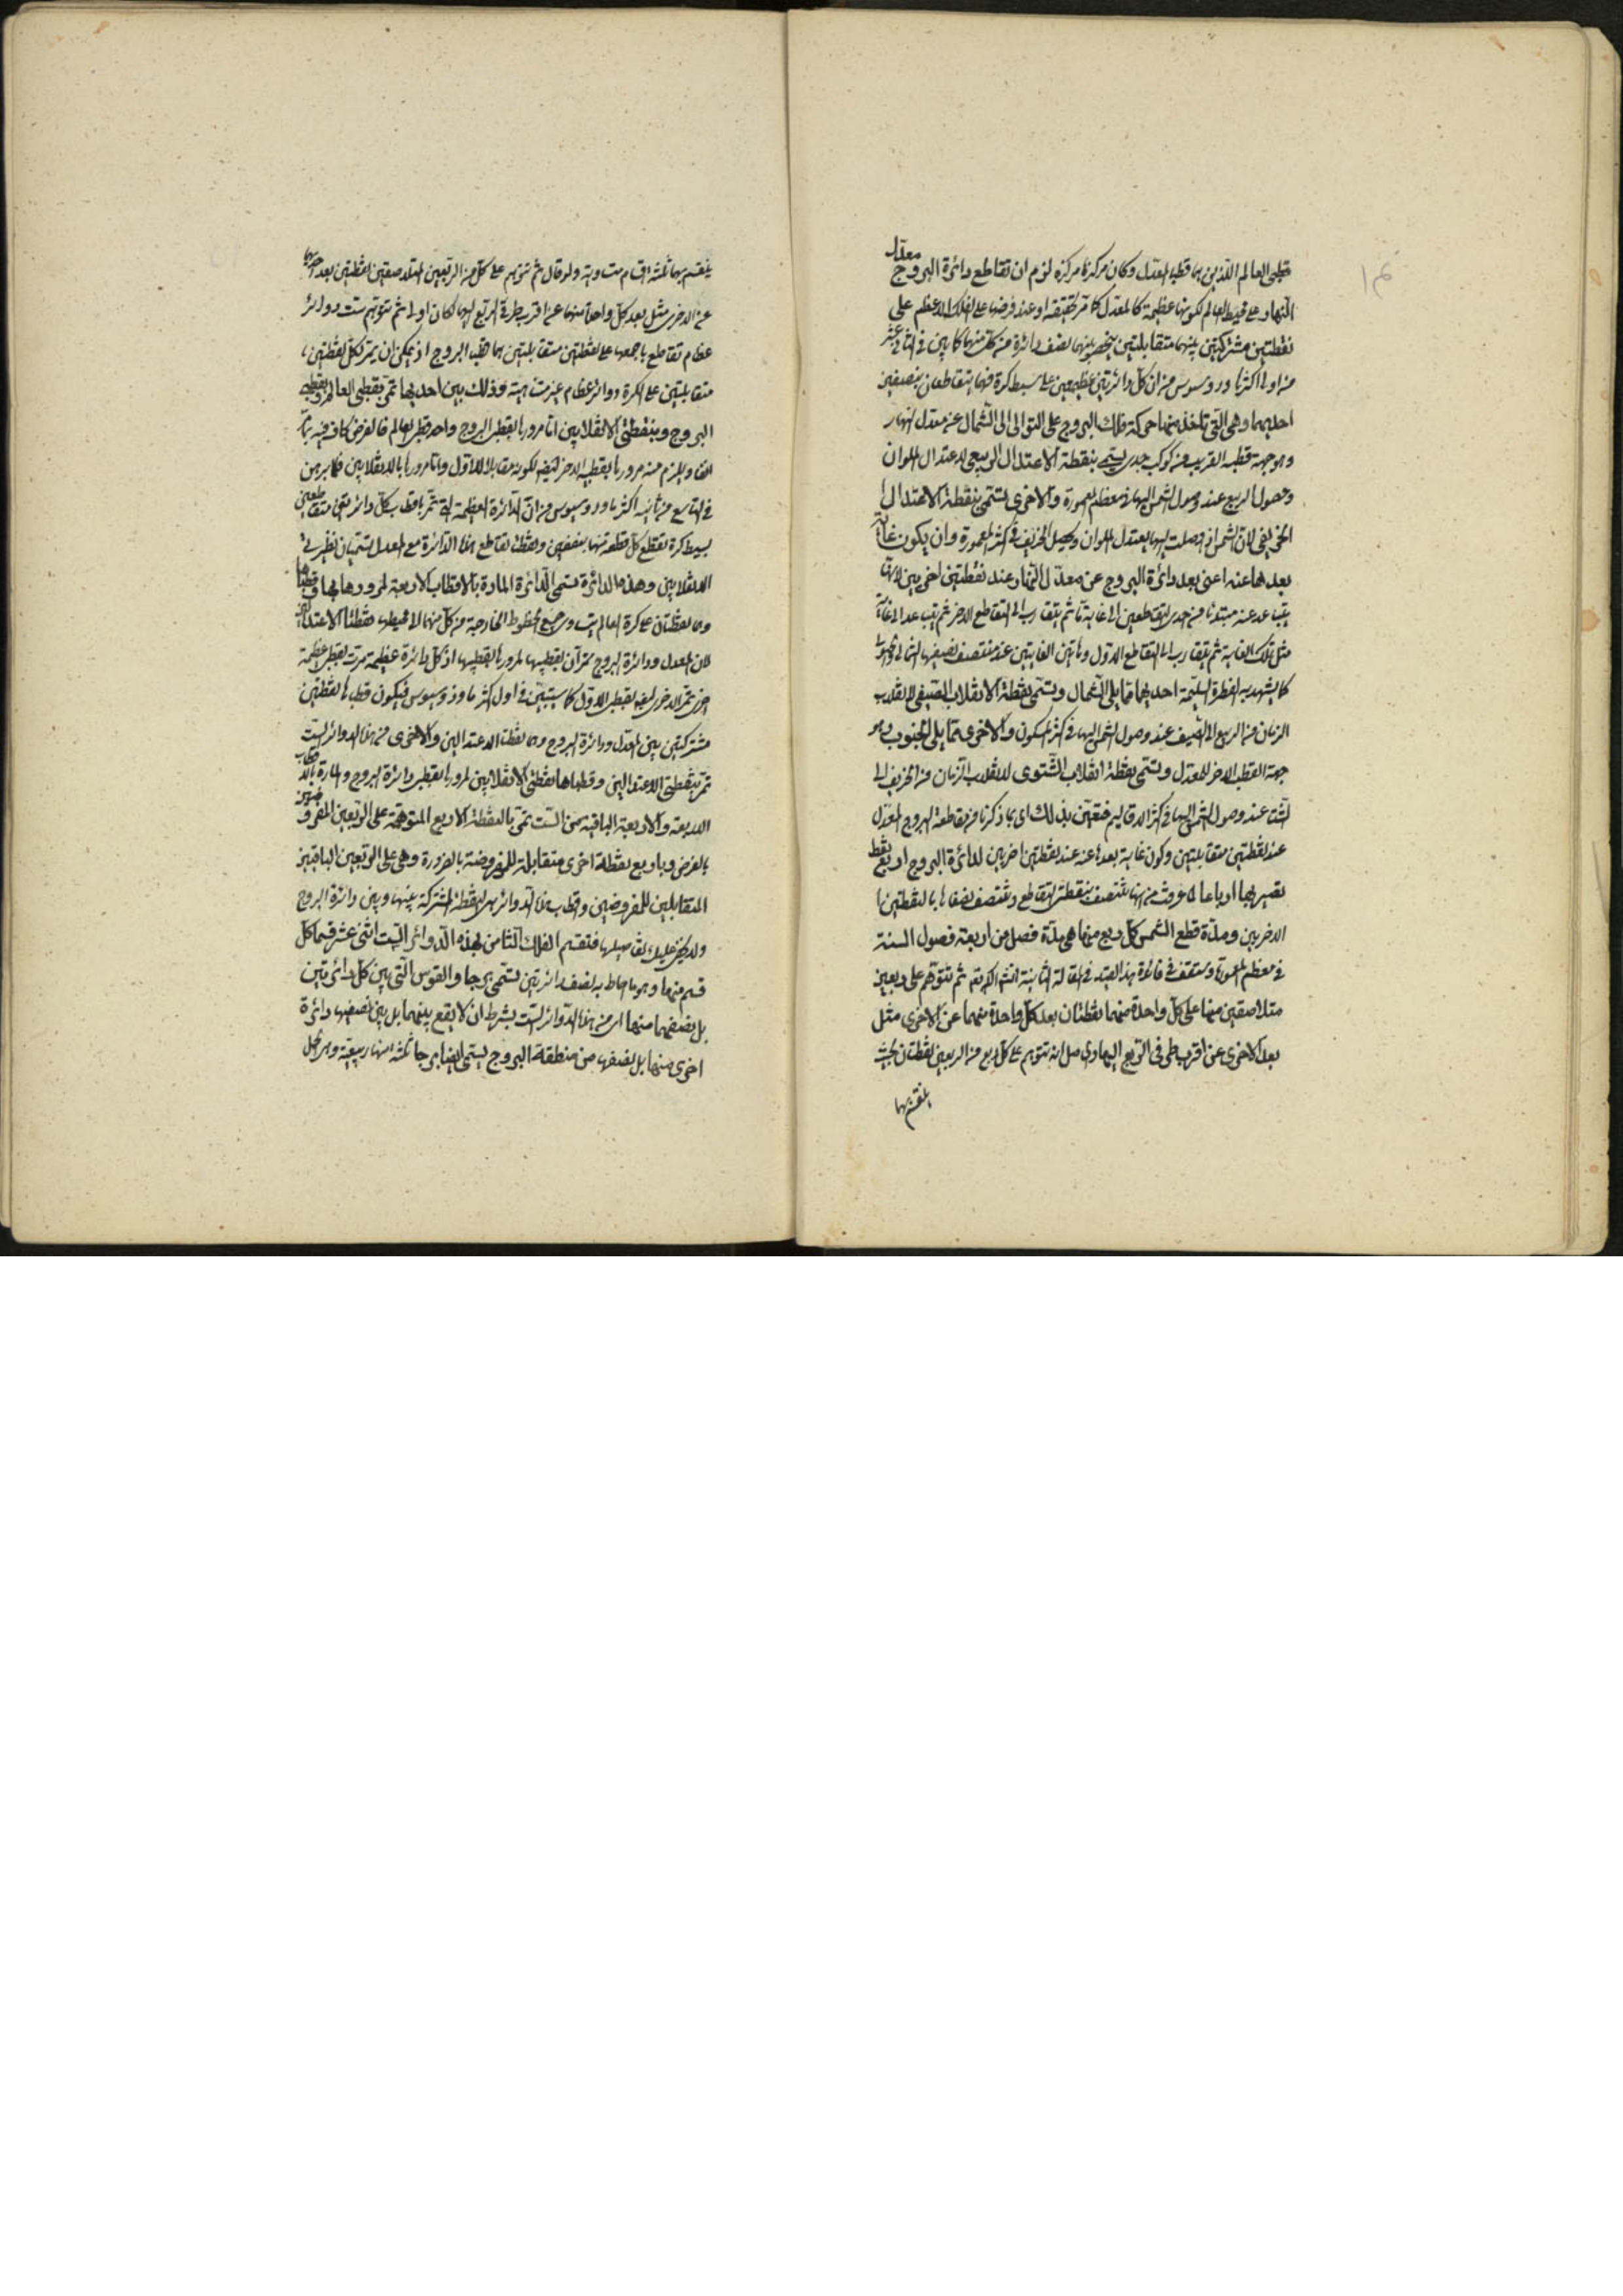 قطبي العالم اللذين هما قطبا المعدل وكان مركزها مركزه لزم ان تقاطع دائرة البروج معدل
النهار على محيط العالم لكونها عظيمة كالمعدل كما مر تحقيقه او عند فرضها على الفلك الاعظم على
نقطتين مشتركتين بينهما متقابلتين بينهما نصف دائرة من كل منهما كما بين في الثاني عشر
من اولى اكثر ثاودوسيوس من ان كل دائرتين عظيمتين على بسيط كرة فهما يتقاطعان بنصفين
احديهما وهي التي تاخذ منها حركة فلك البروج على التوالي الى الشمال عن معدل النهار
وهو جهة قطبه القريب من كوكب جدي يسمى بنقطة الاعتدال الربيعي لاعتدال الملوان
وحصول الربيع عند وصول الشمس اليها في معظم المعمورة والاخرى تسمى بنقطة الاعتدال
الخريفي لان الشمس اذا وصلت اليها يعتدل الملوان ويحصل الخريف في اكثر المعمورة وان يكون غاية
بعدها عنه اعني بعد دائرة البروج عن معدل النهار عند نقطتين اخريين لانها
يتباعد عنه مبتدئا من احدى التقاطعين الى غاية ما ثم يتقارب الى التقاطع الاخر ثم يتباعد الى غاية
مثل تلك الغاية ثم يتقارب الى التقاطع الاول وهاتين الغايتين عند منتصف نصفيها الشمالي والجنوبي
كما يشهد به الفطرة السليمة احديهما مما يلي الشمال وتسمى نقطة الانقلاب الصيفي لانقلاب
الزمان من الربيع الى الصيف عند وصول الشمس اليها في اكثر المسكون والاخرى مما يلي الجنوب وهو
جهة القطب الاخر للمعدل وتسمى نقطة انقلاب الشتوي لانقلاب الزمان من الخريف الى
الشتا عند وصول الشمس اليها في اكثر الاقاليم فتعين بذلك اي بما ذكرنا من مقاطعة البروج المعدل
عند نقطتين متقابلتين وكون غاية بعدها عنه عند نقطتين اخريين لدائرة البروج اربع نقط
تصير بها ارباعا لما عرفت من انها تنتصف بنقطتي التقاطع وتنتصف نصفاها بالنقطتين
الاخريين ومدة قطع الشمس كل ربع منها هي مدة فصل من اربعة فصول السنة
في معظم المعمورة وستقف في فائدة هذا القيد في المقالة الثانية انشاء الله تعم ثم تتوهم على ربعين
متلاصقين منها على كل واحدة منهما نقطتان بعد كل واحدة منهما عن الاخرى مثل
بعد الاخرى عن اقرب طرفي الربع اليها وحاصل انه تتوهم على كل ربع من الربعين نقطتان بحيث
ينقسم بهما
ينقسم بهما ثلثة اقسام متساوية ولو قال ثم تتوهم على كل من الربعين المتلاصقين نقطتين بعد احديهما
عن الاخرى مثل بعد كل واحدة منهما عن اقرب طرفي الربع اليها لكان اولى ثم تتوهم ست دوائر
عظام تقاطع باجمعها على نقطتين متقابلتين هما قطبا البروج اذ يمكن ان يمر بكل نقطتين
متقابلتين على الكرة دوائر عظام غير متناهية وذلك بين احديها تمر بقطبي العالم وبقطبي
البروج وبنقطتي الانقلابين اما مرورها بقطبي البروج واحد قطبي العالم فالفرض كاف فيه
ويلزم منه مرورها بقطبه الاخر ايضا لكونه مقابلا للاول واما مرورها بالانقلابين فلما برهن
في التاسع من ثانية اكثر ثاودوسيوس من ان الدائرة العظيمة التي تمر باقطاب كل دائرتين متقاطعتين
بسيط كرة تقطع كل قطعة منها بنصفين ونقطتا تقاطع هذه الدائرة مع المعدل تسميان نظيرتي
الانقلابين وهذه الدائرة تسمى الدائرة المارة بالاقطاب الاربعة لمرورها بها وقطباها
وهما نقطتان على كرة العالم يتساوى جميع الخطوط الخارجة من كل منهما الى محيطها نقطتا الاعتدالين
لان المعدل ودائرة البروج تمران بقطبيها لمرورها بقطبيهما اذ كل دائرة عظيمة مرت بقطبي عظيمة
اخرى تمر الاخرى ايضا بقطبي الاولى كما سيتبين في اول اكثر ماوذوسيوس فيكون قطباها نقطتين
مشتركتين بين المعدل ودائرة البروج وهما نقطتا الاعتدالين والاخرى من هذه الدوائر الست
تمر بنقطتي الاعتدالين وقطباها نقطتا الانقلابين لمرورها بقطبي دائرة البروج والمارة بالاقطاب
الاربعة والاربعة الباقية من الست تمر بالنقطة الاربع المتوهمة على الربعين المفروضين
بالفرض وباربع نقطة اخرى متقابلة للمفروضة بالضرورة وهي على الربعين الباقيين
المتقابلين للمفروضين واقطاب هذه الدوائر هي النقطة المشتركة بينها وبين دائرة البروج
ولا يخفى عليك تفاصيلها فتقسم الفلك الثامن بهذه الدوائر الست اثني عشر قسما كل
قسم منها وهو ما احاط به نصف دائرتين تسمى برجا والقوس التي بين كل دائرتين
بل نصفيهما منها اي من هذه الدوائر الست بشرط ان لا يقع بينهما بل بين نصفيها دائرة
اخرى منها بل نصفها من منطقة البروج يسمى ايضا برجا ثلثة منها ربيعية وهي الحمل